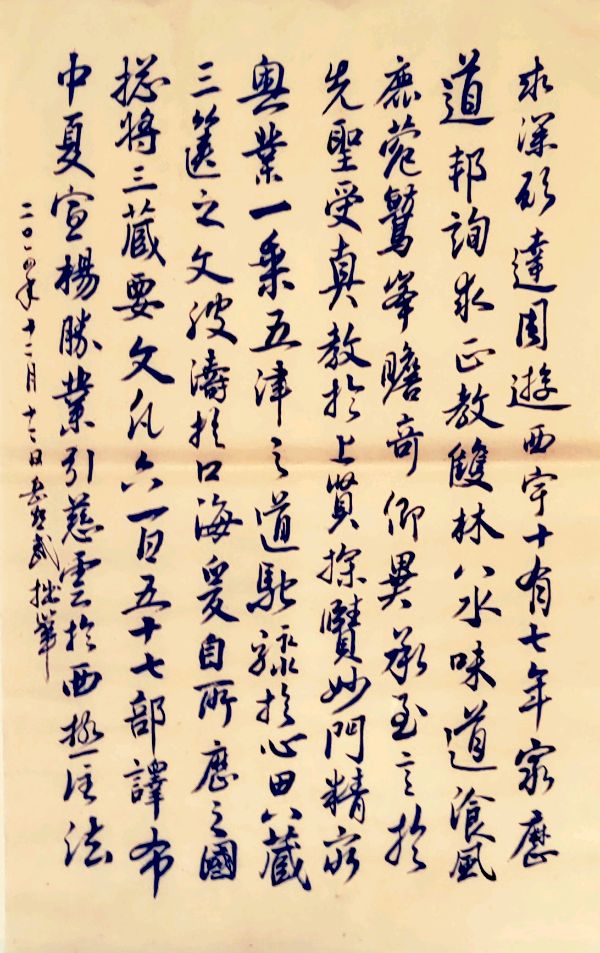 求深願達周遊西宇十有七年窮歷
道邦詢求正教雙林八水味道飡風
鹿菀鷲峯瞻奇仰異承至言於
先聖受真教於上賢探賾妙門精窮
奧業一乘五津之道馳驟於心田八藏
三篋之文波濤於口海爰自所歷之國
揔將三藏要文凡六百五十七部譯布
中夏宣楊勝業引慈雲於西極注法
二〇一四年十二月十二日武拙筆